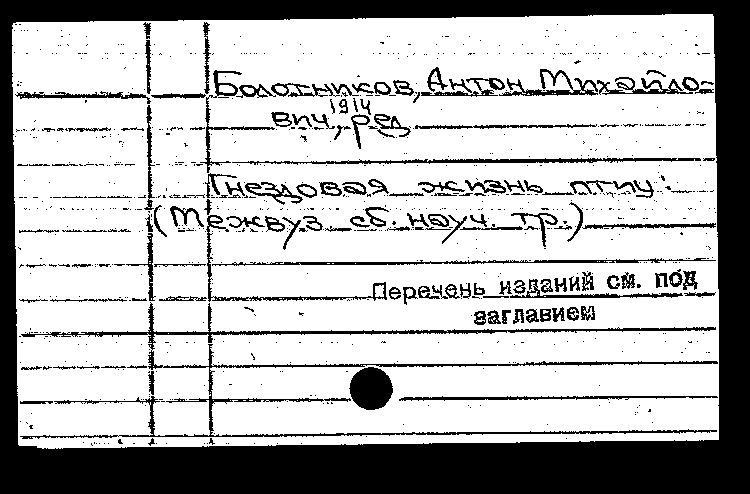 Болотников, Антон Михайло-
1914
вич, ред
Гнездовая жизнь птиц:
(Межвуз. сб. науч. тр.)
Перечень изданий см. под
заглавием